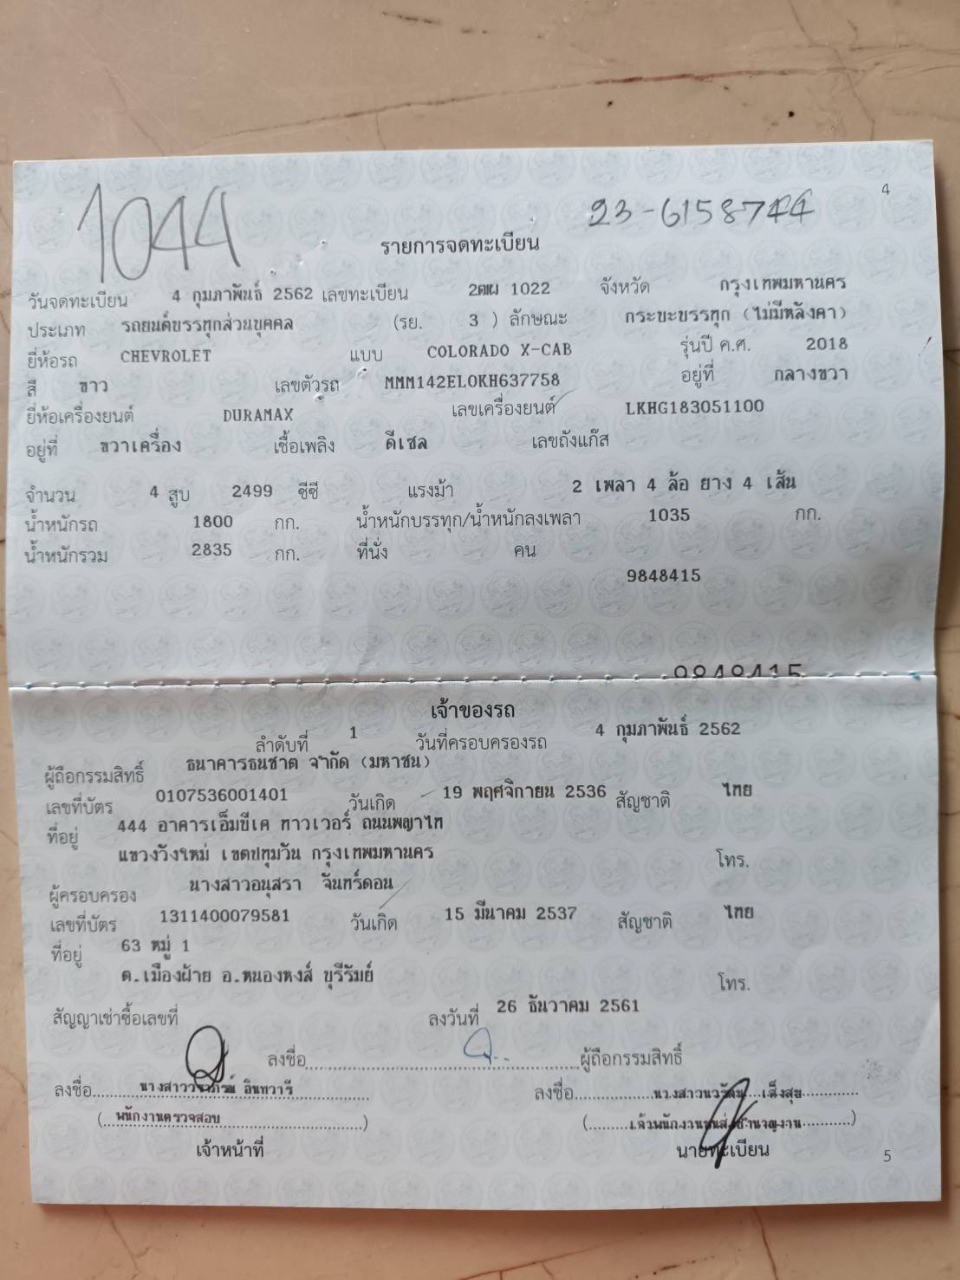 4
1044
23-6158744
รายการจดทะเบียน
วันจดทะเบียน 4 กุมภาพันธ์ 2562 เลขทะเบียน 2ฒผ 1022 จังหวัด กรุงเทพมหานคร
ประเภท รถยนต์บรรทุกส่วนบุคคล (รย. 3 ) ลักษณะ กระบะบรรทุก (ไม่มีหลังคา)
ยี่ห้อรถ CHEVROLET แบบ COLORADO X-CAB รุ่นปี ค.ศ. 2018
สี ขาว เลขตัวรถ MMM142EL0KH637758 อยู่ที่ กลางขวา
ยี่ห้อเครื่องยนต์ DURAMAX เลขเครื่องยนต์ LKHG183051100
อยู่ที่ ขวาเครื่อง เชื้อเพลิง ดีเซล เลขถังแก๊ส
จำนวน 4 สูบ 2499 ซีซี แรงม้า 2 เพลา 4 ล้อ ยาง 4 เส้น
น้ำหนักรถ 1800 กก. น้ำหนักบรรทุก/น้ำหนักลงเพลา 1035 กก.
น้ำหนักรวม 2835 กก. ที่นั่ง คน
9848415
9848415
เจ้าของรถ
ลำดับที่ 1 วันที่ครอบครองรถ 4 กุมภาพันธ์ 2562
ผู้ถือกรรมสิทธิ์ ธนาคารธนชาต จำกัด (มหาชน)
เลขที่บัตร 0107536001401 วันเกิด 19 พฤศจิกายน 2536 สัญชาติ ไทย
ที่อยู่ 444 อาคารเอ็มบีเค ทาวเวอร์ ถนนพญาไท
แขวงวังใหม่ เขตปทุมวัน กรุงเทพมหานคร โทร.
ผู้ครอบครอง นางสาวอนุสรา จันทร์ดอน
เลขที่บัตร 1311400079581 วันเกิด 15 มีนาคม 2537 สัญชาติ ไทย
ที่อยู่ 63 หมู่ 1
ต.เมืองฝ้าย อ.หนองหงส์ บุรีรัมย์ โทร.
สัญญาเช่าซื้อเลขที่ ลงวันที่ 26 ธันวาคม 2561
ลงชื่อ ผู้ถือกรรมสิทธิ์
ลงชื่อ นางสาววราภรณ์ อินทวารี ลงชื่อ เส็งสุข
(พนักงานตรวจสอบ) (เจ้าพนักงานขนส่งชำนาญงาน)
เจ้าหน้าที่ นายทะเบียน
5